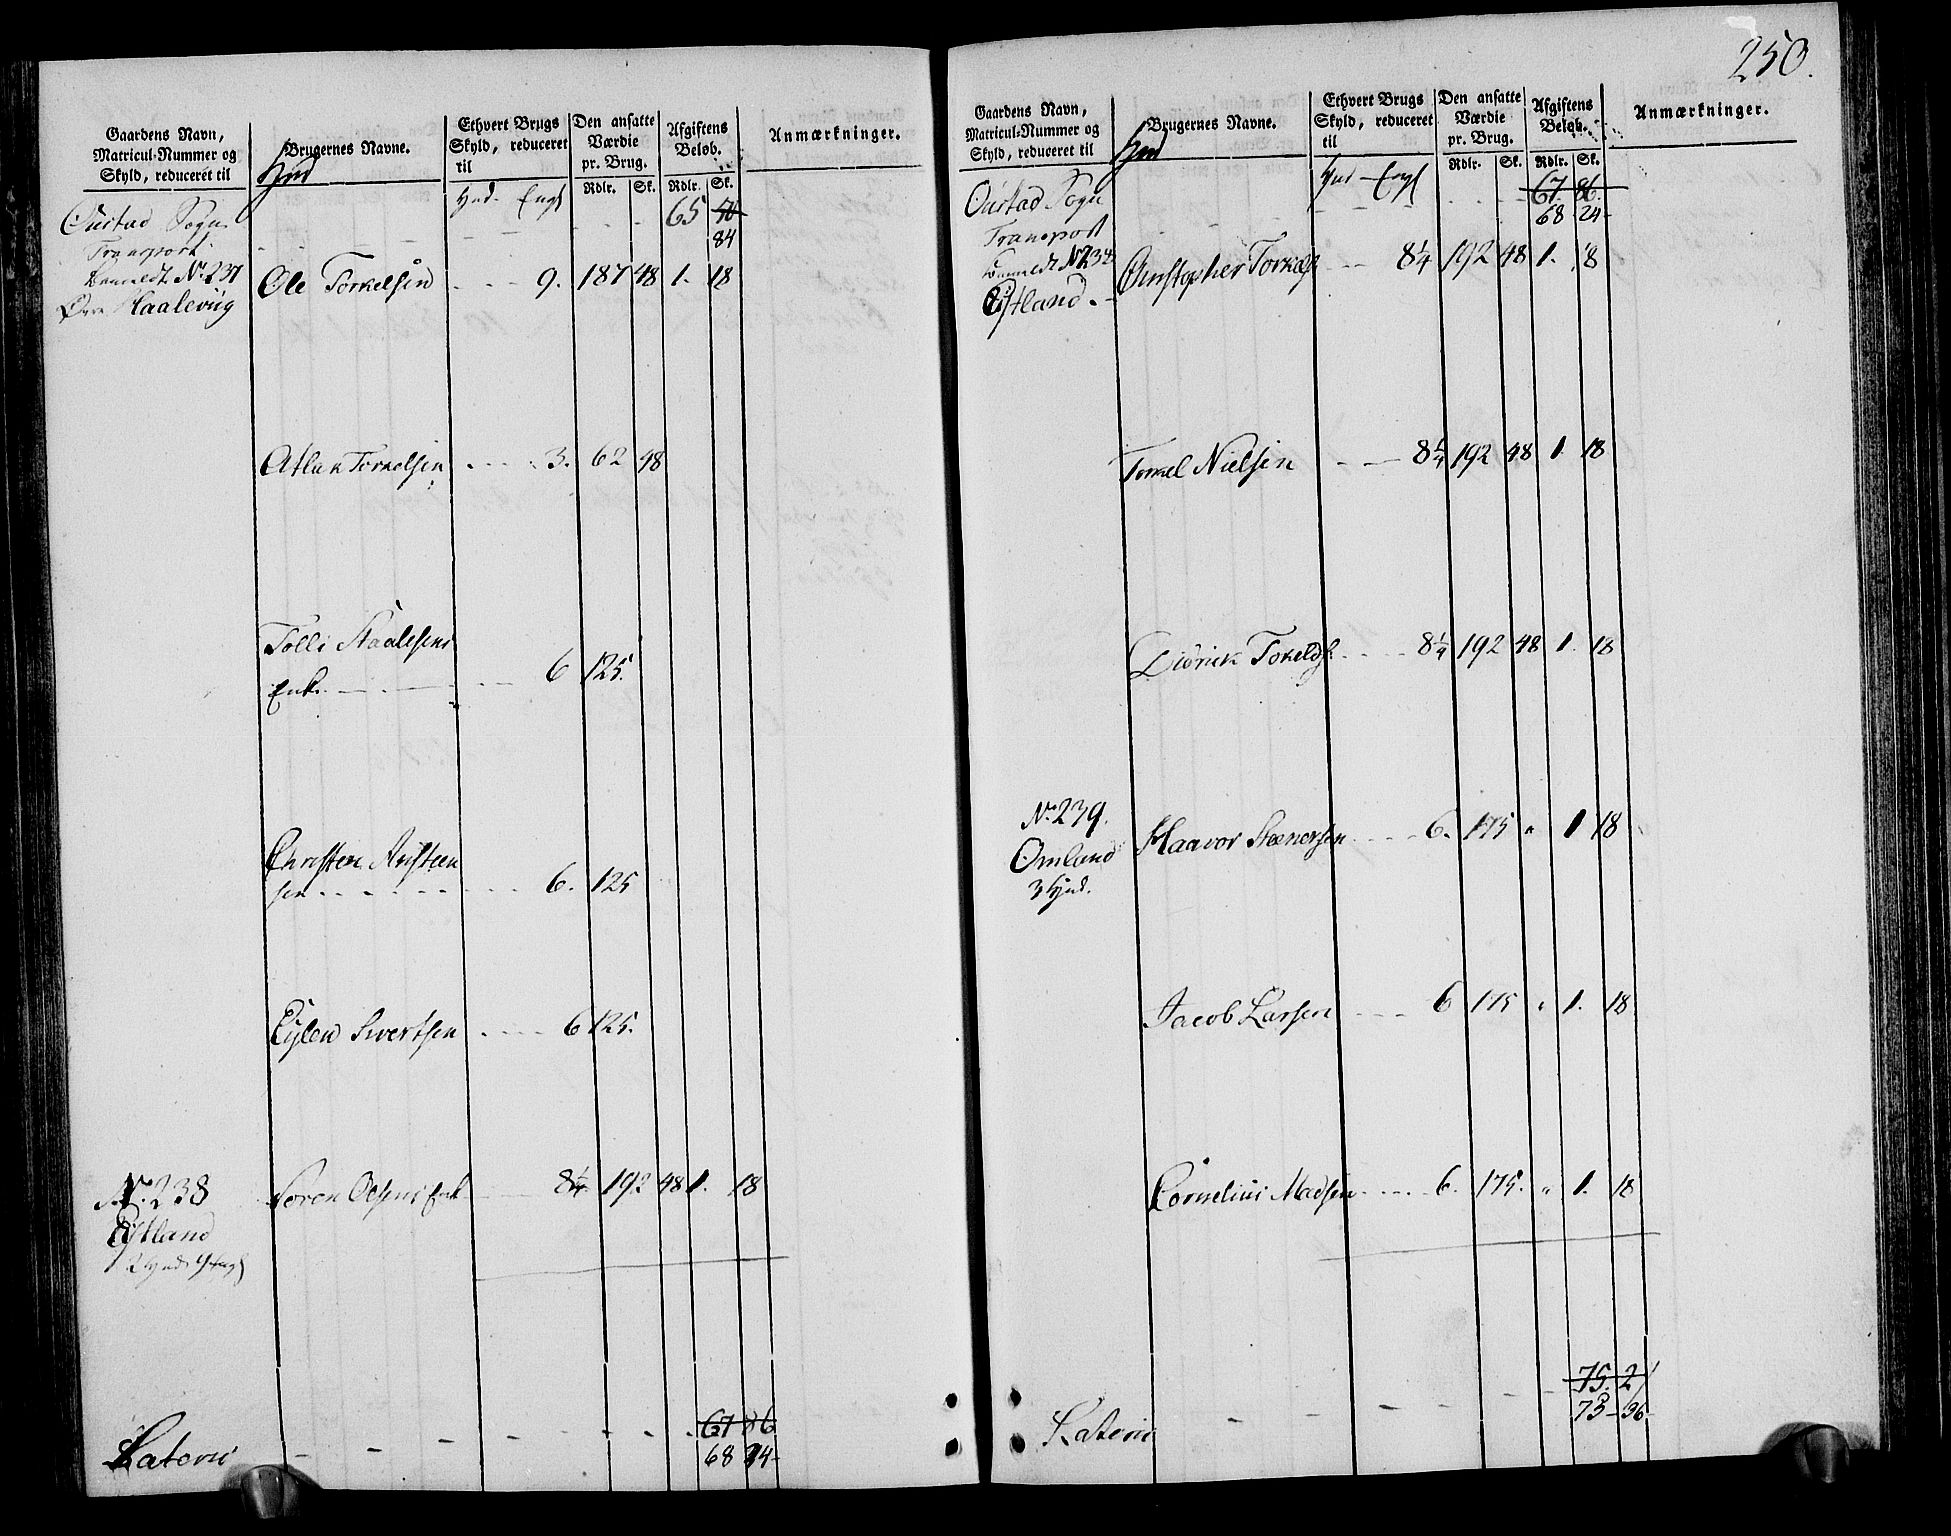 Gaardens Navn,
Matricul-Nummer og
Skyld, reduceret til
Brugernes Navne.
Ethvert Brugs
Skyld, reduceret
til
Den ansatte
Værdie
pr. Brug.
Rdlr. Sk.
Afgiftens
Beløb.
Rdlr. Sk.
Anmærkninger.
Hud. Engl
Oustad Sogn
Transport - - - 65
84
No. 237 Ole Torkelsen - - - 9. 187 48 1. 18
Øvre Haalevüg
Atlak Torkelsen - - - 3. 62 48
Tolli Staalesens
Enke - - - 6 125.
Christen Austeen
sen - - - 6. 125
Eylev Sivertsen - - - 6 125.
No. 238 Soren Olsens Enk - - 8¼ 192 48 1. 18
Eistland
2 Hud
67 86
Lateris - - - 68 24-
250.
Gaardens Navn,
Matricul-Nummer og
Skyld, reduceret til
Brugernes Navne.
Ethvert Brugs
Skyld, reduceret
til
Den ansatte
Værdie
pr. Brug.
Rdlr. Sk.
Afgiftens
Beløb.
Rdlr. Sk.
Anmærkninger.
Hud Engl
Oustad Sogn - - - 67. 86.
68 24-
Transport
No. 238 Christopher Torkels - - 8¼ 192 48 1. 18
Eistland.
Torkel Nielsen - - 8¼ 192 48 1. 18
Didrick Tokelds. - - - 8¼ 192 48 1. 18
No. 239.
Omland Haavor Stenersen - - - 6. 175 " 1 18
3 Hud.
Jacob Larsen - - - 6 175 " 1. 18
Cornelius Madsen - - - 6. 175. " 1. 18
75. 2
Lateris - - - 73- 36-